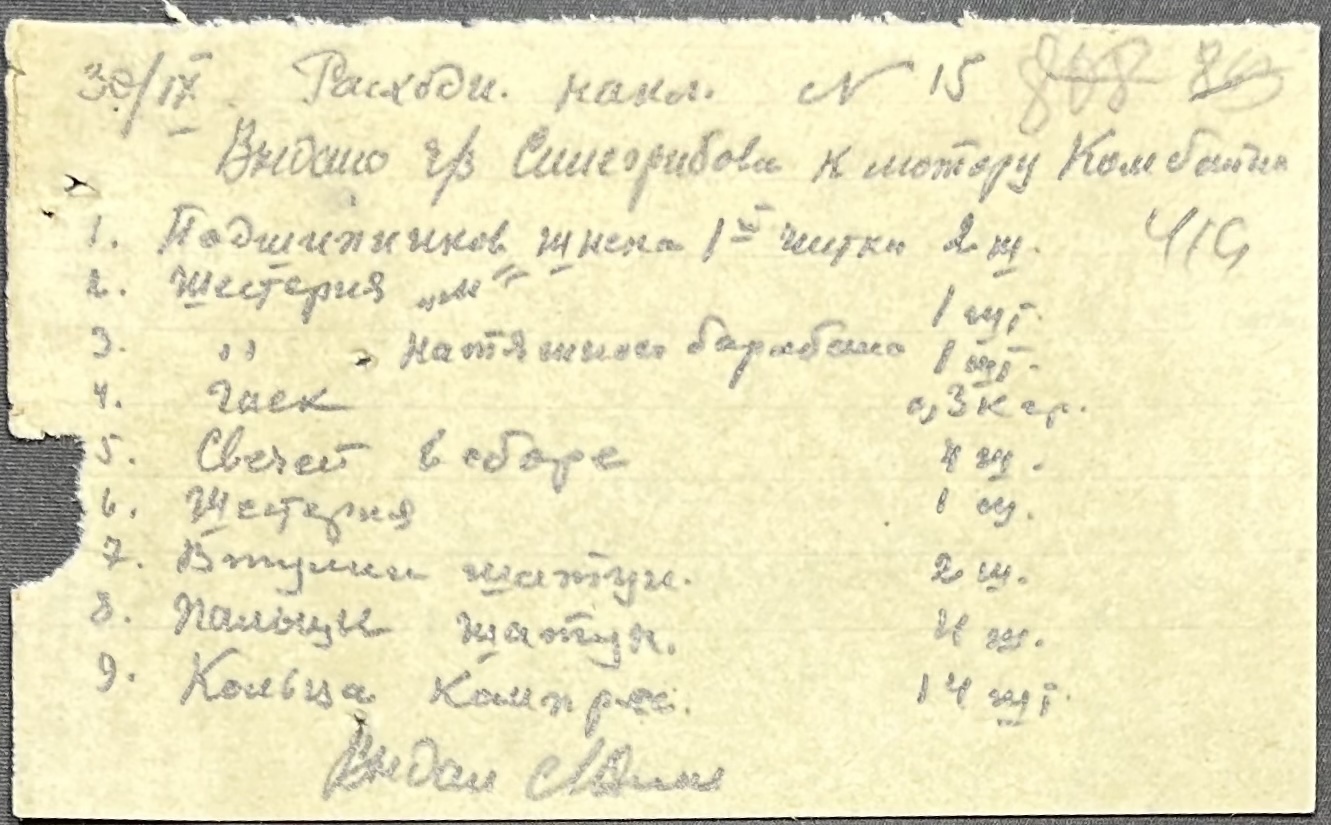 30/IX Расходн. накл. № 15
Выдано ч/з Синегрибова к мотору Комбайна
1. Подшипников шнека 1ой чистки 2 ш. 419
2. Шестерня „м“ 1 шт.
3. " натяжного барабана 1 шт.
4. Гаек 0,3 кгр.
5. Свечей в сборе 4 ш.
6. Шестерня 1 ш.
7. Втулки шатун. 2 ш.
8. Пальцы шатун. 4 ш.
9. Кольца компрес. 14 шт.
Выдал